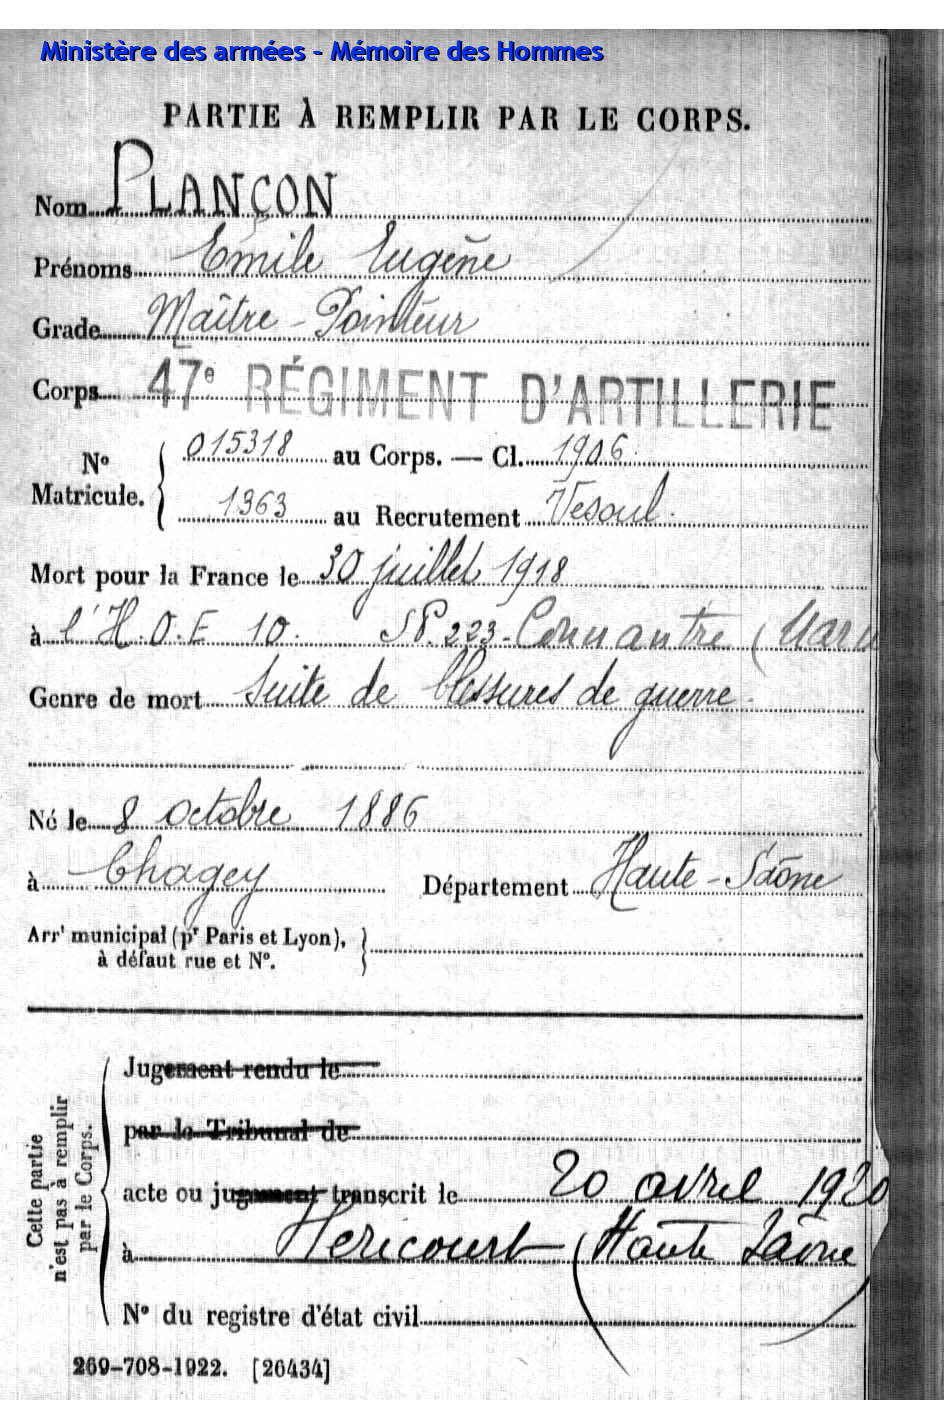 Ministère des armées - Mémoire des Hommes
PARTIE À REMPLIR PAR LE CORPS.
Nom PLANÇON
Prénoms Emile Eugène
Grade Maître-Pointeur
Corps 47e RÉGIMENT D'ARTILLERIE
No Matricule. 015318 au Corps. — Cl. 1906
1363 au Recrutement Vesoul.
Mort pour la France le 30 juillet 1918
à l'H.O.E 10. SP. 223 - Connantre (Marn
Genre de mort Suite de blessures de guerre.
Né le 8 octobre 1886
à Chagey Département Haute-Saône
Arrt municipal (pr Paris et Lyon),
à défaut rue et No.
Cette partie
n'est pas à remplir
par le Corps.
Jugement rendu le
par le Tribunal de
acte ou jugement transcrit le 20 avril 1920
à Héricourt (Haute Saône)
No du registre d'état civil
269-708-1922. [26434]